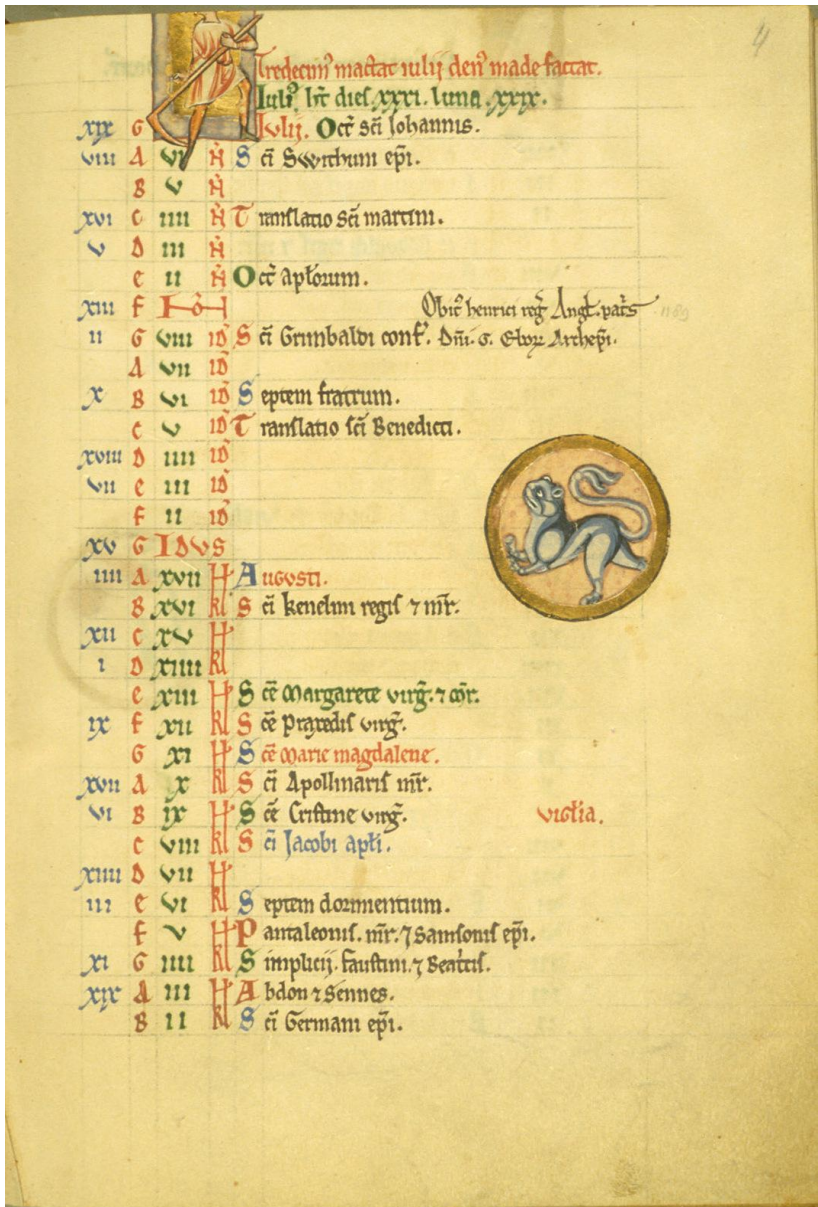 4
Tredecim᷒ mactat iulij den᷒ made factat.
Iuli᷒ ħt dies .xxxi. luna .xxix.
xix G Iulij. Oct̄ sc̄i Iohannis.
viii A vi N̄ Sc̄i Swithuni ep̄i.
B v N̄
xvi C iiii N̄ Translatio sc̄i martini.
v D iii N̄
e ii N̄ Oct̄ apl̄orum.
xiii F Obit᷒ henrici reḡ Angl̄. pat̄s 1189
ii G viii id̄ Sc̄i Grimbaldi conf̄. Dn̄i. G. Ebor Archep̄i.
A vii id̄
x B vi id̄ Septem fratrum.
C v id̄ Translatio sc̄i Benedicti.
xviii D iiii id̄
vii e iii id̄
F ii id̄
xv G IDVS
iiii A xvii kl Augusti.
B xvi kl Sc̄i kenelmi regis ⁊ mr̄.
xii C xv kl
i D xiiii kl
e xiii kl Sc̄e Margarete virḡ. ⁊ mr̄.
ix F xii kl Sc̄e praxedis virḡ.
G xi kl Sc̄e Marie magdalene.
xvii A x kl Sc̄i Apollinaris mr̄.
vi B ix kl Sc̄e Cristine virḡ. Vigl̄ia.
C viii kl Sc̄i Jacobi apl̄i.
xiiii D vii kl
iii e vi kl Septem dormientium.
F v kl Pantaleonis. mr̄. ⁊ Samsonis ep̄i.
xi G iiii kl Simplicij. faustini. ⁊ Beat̄cis.
xix A iii kl Abdon ⁊ Sennes.
B ii kl Sc̄i Germani ep̄i.